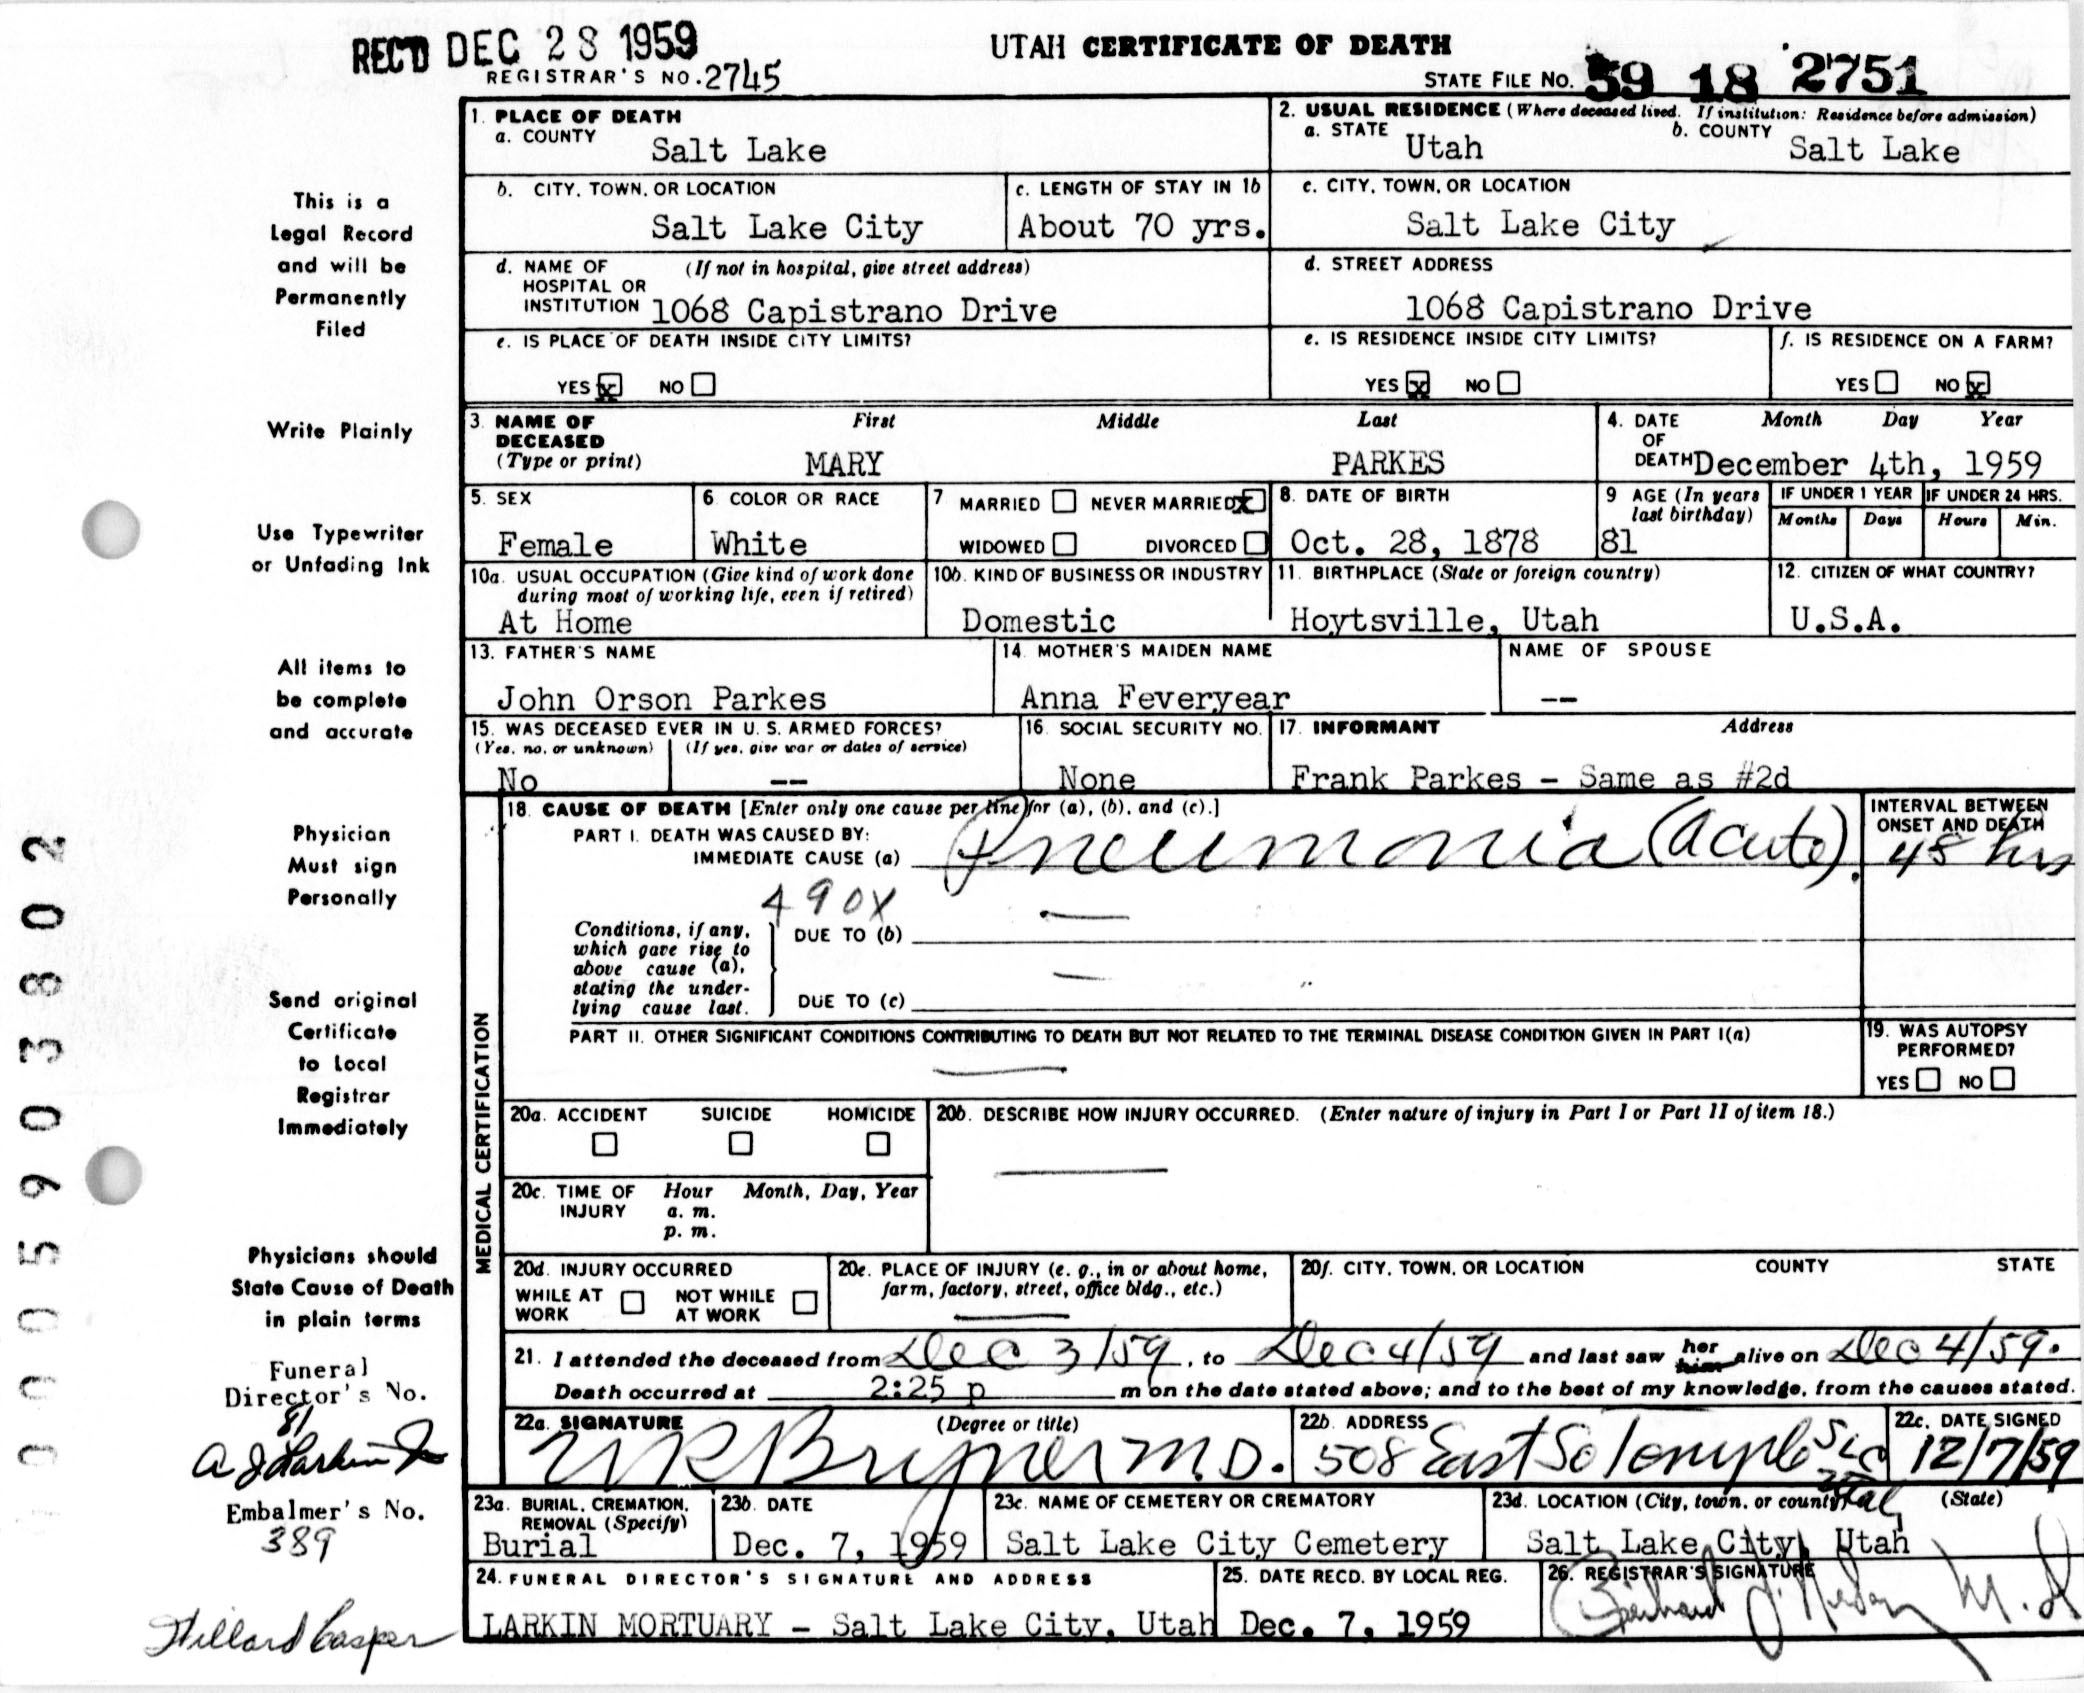 REC'D DEC 28 1959
REGISTRAR'S NO. 2745
UTAH CERTIFICATE OF DEATH
STATE FILE NO. 59 18 2751
1. PLACE OF DEATH
a. COUNTY Salt Lake
2. USUAL RESIDENCE (Where deceased lived. If institution: Residence before admission)
a. STATE Utah b. COUNTY Salt Lake
b. CITY, TOWN, OR LOCATION Salt Lake City
c. LENGTH OF STAY IN 1b About 70 yrs.
c. CITY, TOWN, OR LOCATION Salt Lake City
d. NAME OF HOSPITAL OR INSTITUTION (If not in hospital, give street address) 1068 Capistrano Drive
d. STREET ADDRESS 1068 Capistrano Drive
e. IS PLACE OF DEATH INSIDE CITY LIMITS?
YES x NO
e. IS RESIDENCE INSIDE CITY LIMITS?
YES x NO
f. IS RESIDENCE ON A FARM?
YES NO x
3. NAME OF DECEASED (Type or print) First Middle Last
MARY PARKES
4. DATE OF DEATH Month Day Year
December 4th, 1959
5. SEX Female
6. COLOR OR RACE White
7 MARRIED NEVER MARRIED x
WIDOWED DIVORCED
8. DATE OF BIRTH Oct. 28, 1878
9 AGE (In years last birthday) 81
IF UNDER 1 YEAR Months Days
IF UNDER 24 HRS. Hours Min.
10a. USUAL OCCUPATION (Give kind of work done during most of working life, even if retired)
At Home
10b. KIND OF BUSINESS OR INDUSTRY Domestic
11. BIRTHPLACE (State or foreign country) Hoytsville, Utah
12. CITIZEN OF WHAT COUNTRY? U.S.A.
13. FATHER'S NAME John Orson Parkes
14. MOTHER'S MAIDEN NAME Anna Feveryear
NAME OF SPOUSE --
15. WAS DECEASED EVER IN U. S. ARMED FORCES?
(Yes, no, or unknown) (If yes, give war or dates of service)
No --
16. SOCIAL SECURITY NO. None
17. INFORMANT Address
Frank Parkes - Same as #2d
MEDICAL CERTIFICATION
18. CAUSE OF DEATH [Enter only one cause per line for (a), (b), and (c).]
PART I. DEATH WAS CAUSED BY:
IMMEDIATE CAUSE (a) Pneumonia (acute).
INTERVAL BETWEEN ONSET AND DEATH
48 hrs
490X
Conditions, if any, which gave rise to above cause (a), stating the underlying cause last.
DUE TO (b) —
DUE TO (c) —
PART II. OTHER SIGNIFICANT CONDITIONS CONTRIBUTING TO DEATH BUT NOT RELATED TO THE TERMINAL DISEASE CONDITION GIVEN IN PART I(a)
—
19. WAS AUTOPSY PERFORMED?
YES NO
20a. ACCIDENT SUICIDE HOMICIDE
20b. DESCRIBE HOW INJURY OCCURRED. (Enter nature of injury in Part I or Part II of item 18.)
—
20c. TIME OF INJURY Hour Month, Day, Year
a. m.
p. m.
20d. INJURY OCCURRED
WHILE AT WORK NOT WHILE AT WORK
20e. PLACE OF INJURY (e. g., in or about home, farm, factory, street, office bldg., etc.)
—
20f. CITY, TOWN, OR LOCATION COUNTY STATE
21. I attended the deceased from Dec 3/59, to Dec 4/59 and last saw her him alive on Dec 4/59.
Death occurred at 2:25 p m on the date stated above; and to the best of my knowledge, from the causes stated.
22a. SIGNATURE (Degree or title)
UR Bryner M.D.
22b. ADDRESS
508 East So Temple SLC Utah
22c. DATE SIGNED
12/7/59
23a. BURIAL, CREMATION, REMOVAL (Specify)
Burial
23b. DATE Dec. 7, 1959
23c. NAME OF CEMETERY OR CREMATORY
Salt Lake City Cemetery
23d. LOCATION (City, town, or county) (State)
Salt Lake City, Utah
24. FUNERAL DIRECTOR'S SIGNATURE AND ADDRESS
LARKIN MORTUARY - Salt Lake City, Utah
25. DATE RECD. BY LOCAL REG.
Dec. 7, 1959
26. REGISTRAR'S SIGNATURE
M.D.
This is a
Legal Record
and will be
Permanently
Filed
Write Plainly
Use Typewriter
or Unfading Ink
All items to
be complete
and accurate
Physician
Must sign
Personally
Send original
Certificate
to Local
Registrar
Immediately
Physicians should
State Cause of Death
in plain terms
Funeral
Director's No.
81
A J Larkin Jr
Embalmer's No.
389
Willard Casper
000590 3802